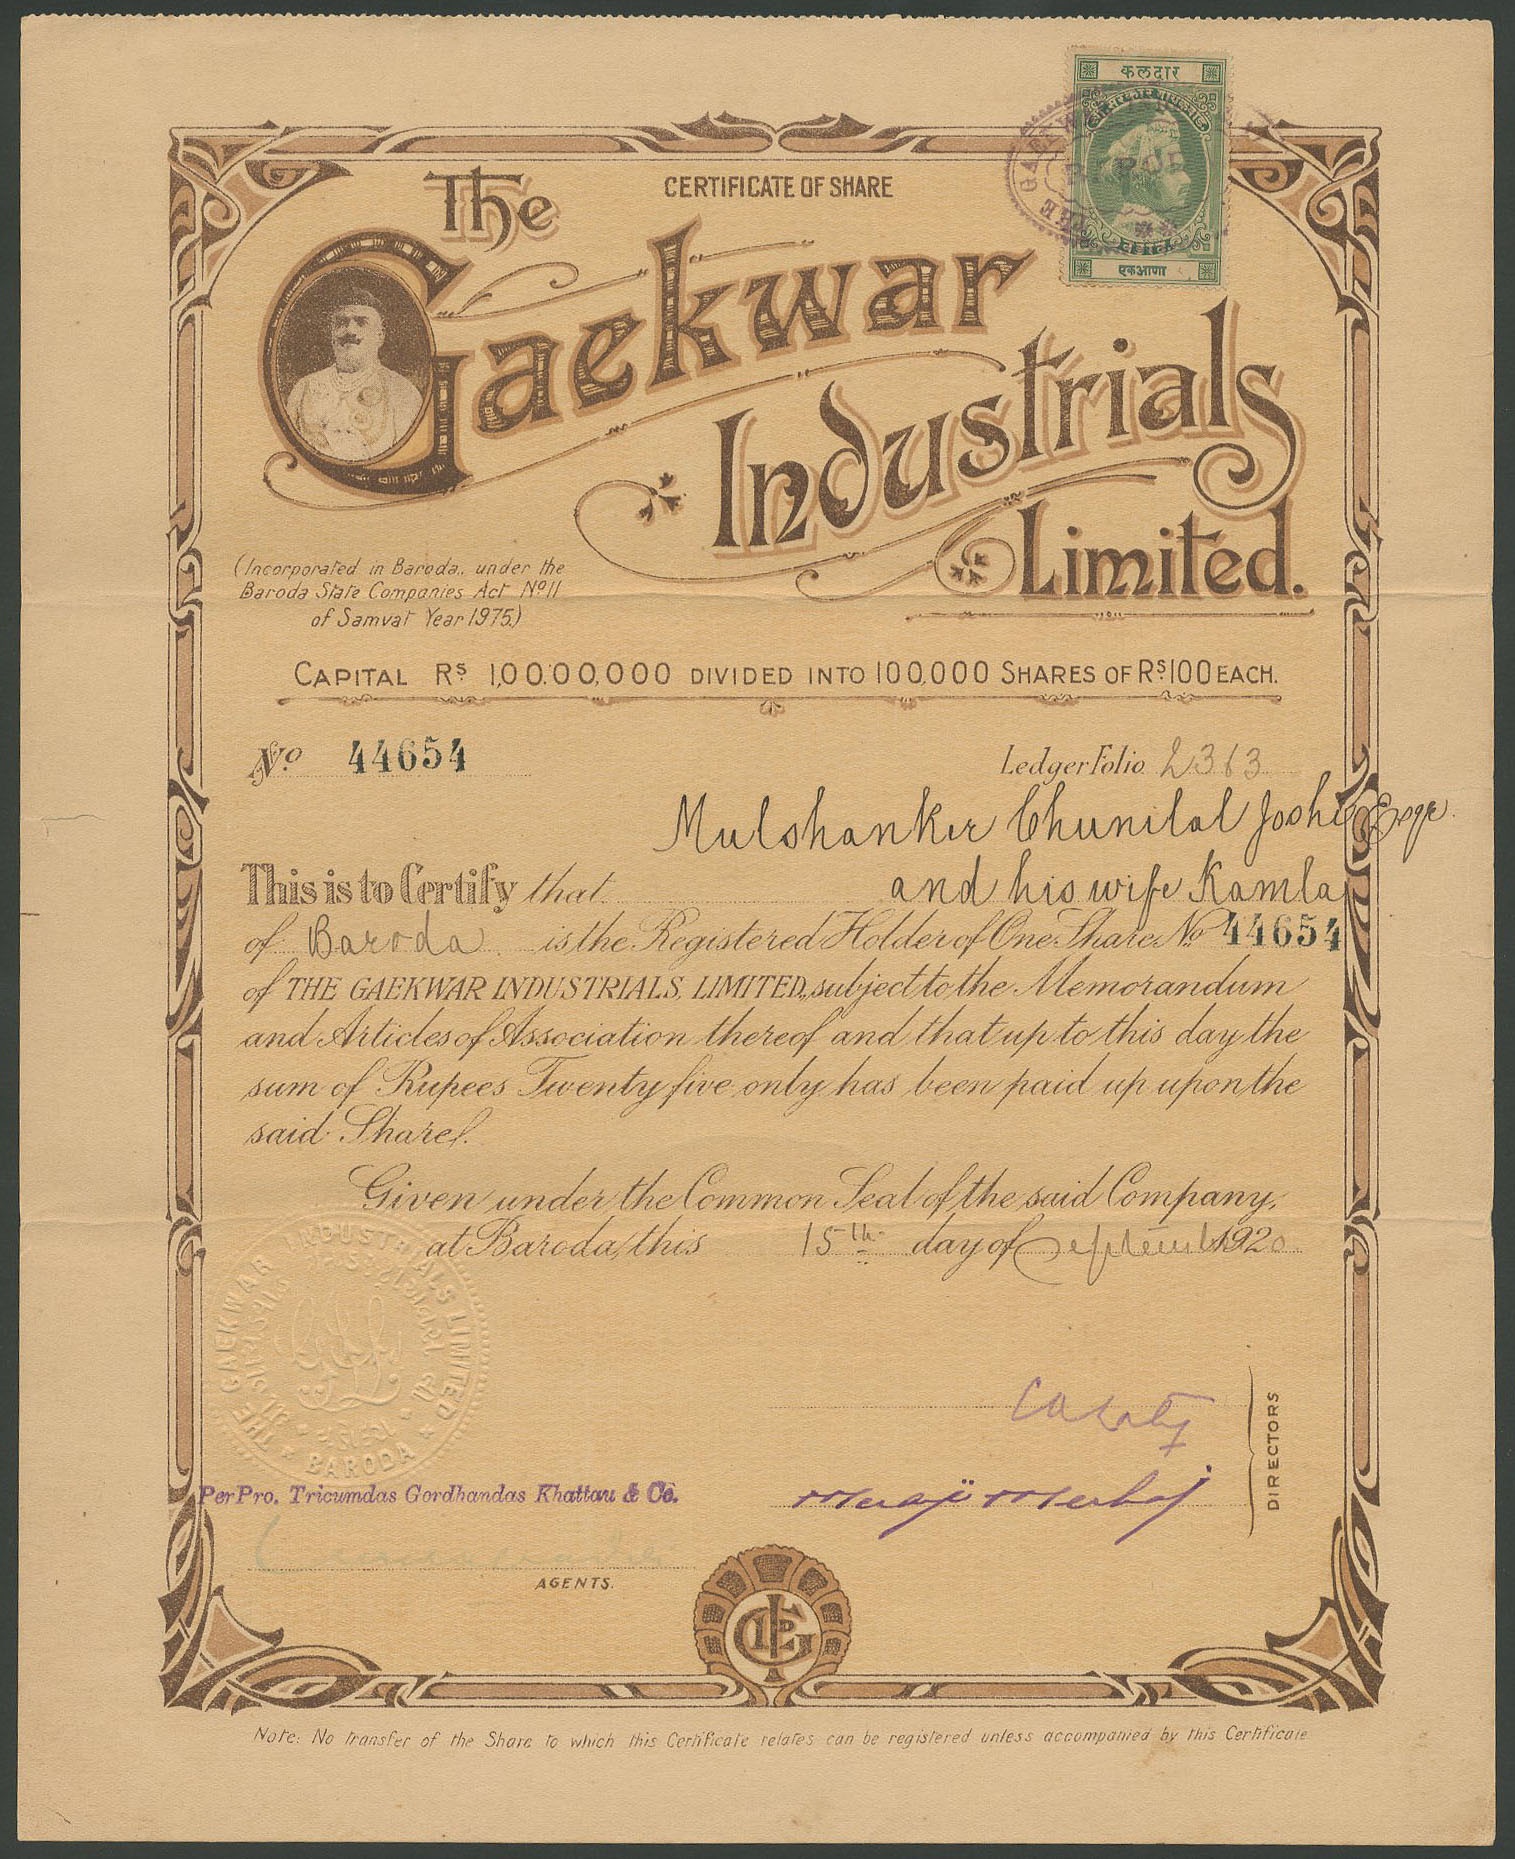 कलदार
एकआणा
CERTIFICATE OF SHARE
The
Gaekwar
Industrials
Limited.
(Incorporated in Baroda., under the
Baroda State Companies Act No 11
of Samvat Year 1975.)
CAPITAL RS 1,00,00,000 DIVIDED INTO 100,000 SHARES OF RS 100 EACH.
No 44654
Ledger Folio 2363
Mulshanker Chunilal Joshi Esqr.
This is to Certify that and his wife Kamla
of Baroda is the Registered Holder of One Share No 44654
of THE GAEKWAR INDUSTRIALS, LIMITED, subject to the Memorandum
and Articles of Association thereof and that up to this day the
sum of Rupees Twenty five only has been paid up upon the
said Share.
Given under the Common Seal of the said Company,
at Baroda, this 15th day of September 1920
THE GAEKWAR INDUSTRIALS LIMITED
BARODA
DIRECTORS
Per Pro. Tricumdas Gordhandas Khattau & Co.
AGENTS.
Note: No transfer of the Share to which this Certificate relates can be registered unless accompanied by this Certificate